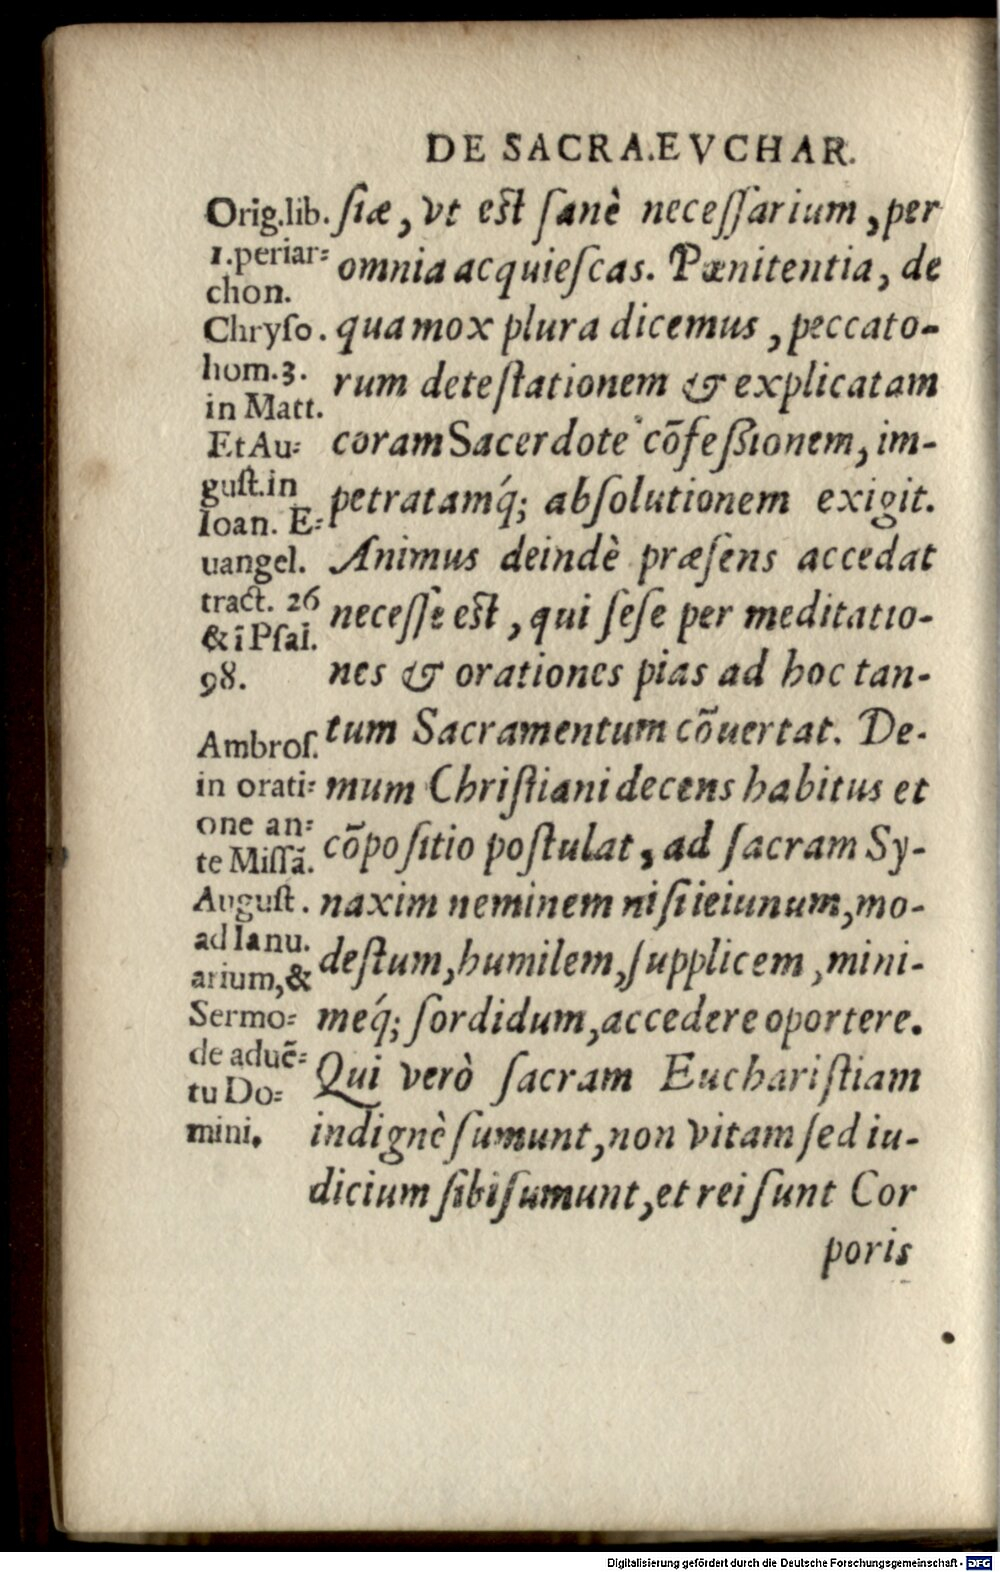 DE SACRA.EVCHAR.
ſiæ, vt est ſanè neceſſarium, per
omnia acquieſcas. Pænitentia, de
qua mox plura dicemus, peccato-
rum deteſtationem & explicatam
coram Sacerdote cõfeßionem, im-
petratamq́; abſolutionem exigit.
Animus deindè præſens accedat
neceſſe est, qui ſeſe per meditatio-
nes & orationes pias ad hoc tan-
tum Sacramentum cõuertat. De-
mum Chriſtiani decens habitus et
cõpoſitio poſtulat, ad ſacram Sy-
naxim neminem niſi ieiunum, mo-
deſtum, humilem, ſupplicem, mini-
meq́; ſordidum, accedere oportere.
Qui verò ſacram Euchariſtiam
indignè ſumunt, non vitam ſed iu-
dicium ſibi ſumunt, et rei ſunt Cor
poris
Orig.lib.
1.periar=
chon.
Chryſo.
hom.3.
in Matt.
Et Au=
guſt.in
Ioan. E=
uangel.
tract. 26
& ĩ Pſal.
98.
Ambroſ.
in orati=
one an=
te Miſſã.
Auguſt.
ad Ianu.
arium, &
Sermo=
de aduẽ=
tu Do=
mini.
Digitalisierung gefördert durch die Deutsche Forschungsgemeinschaft - DFG